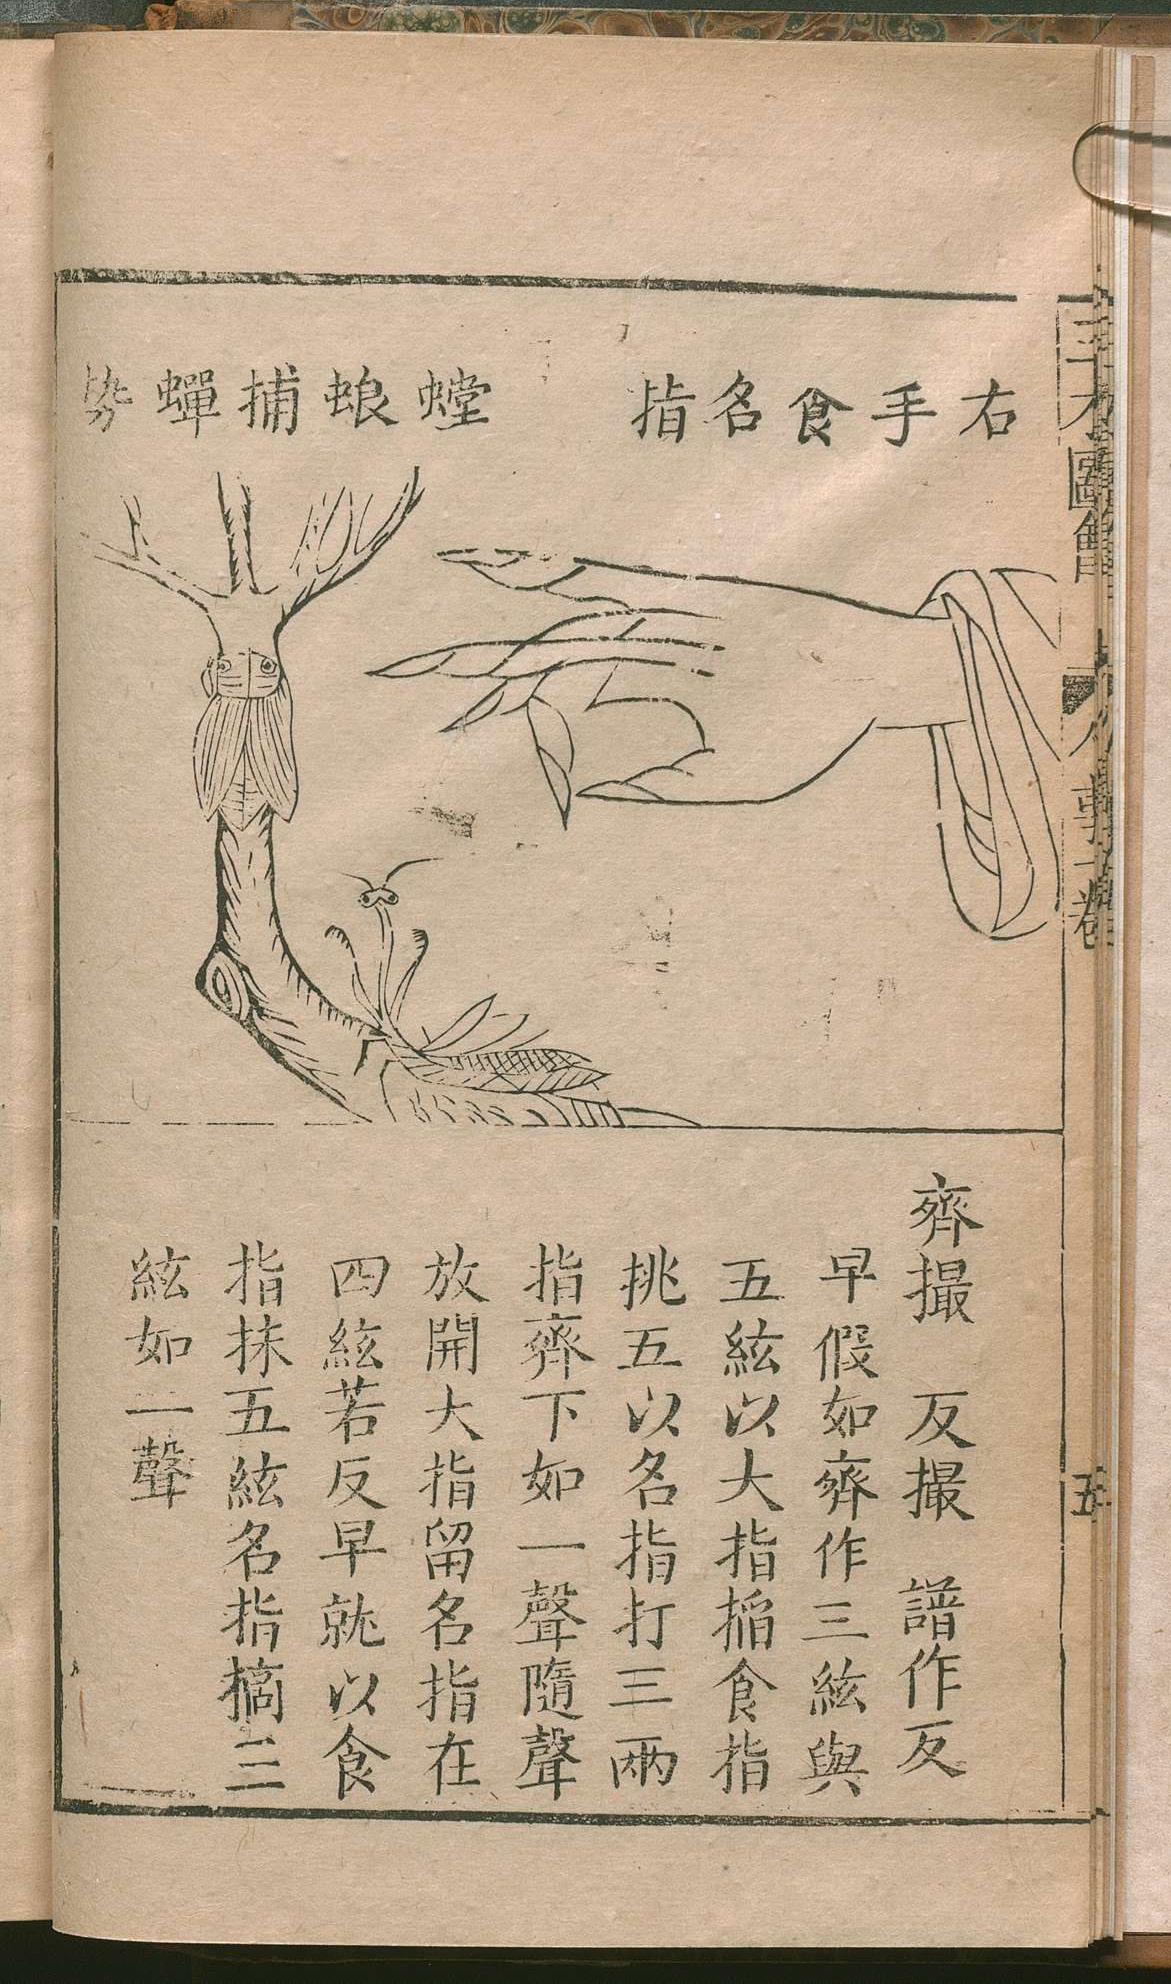 右手食名指
螳蜋捕蟬勢
齊撮　反撮　譜作反
早假如齊作三絃與
五絃以大指搯食指
挑五以名指打三兩
指齊下如一聲隨聲
放開大指留名指在
四絃若反早就以食
指抹五絃名指摘三
絃如一聲
三才圖會
人事一卷
五